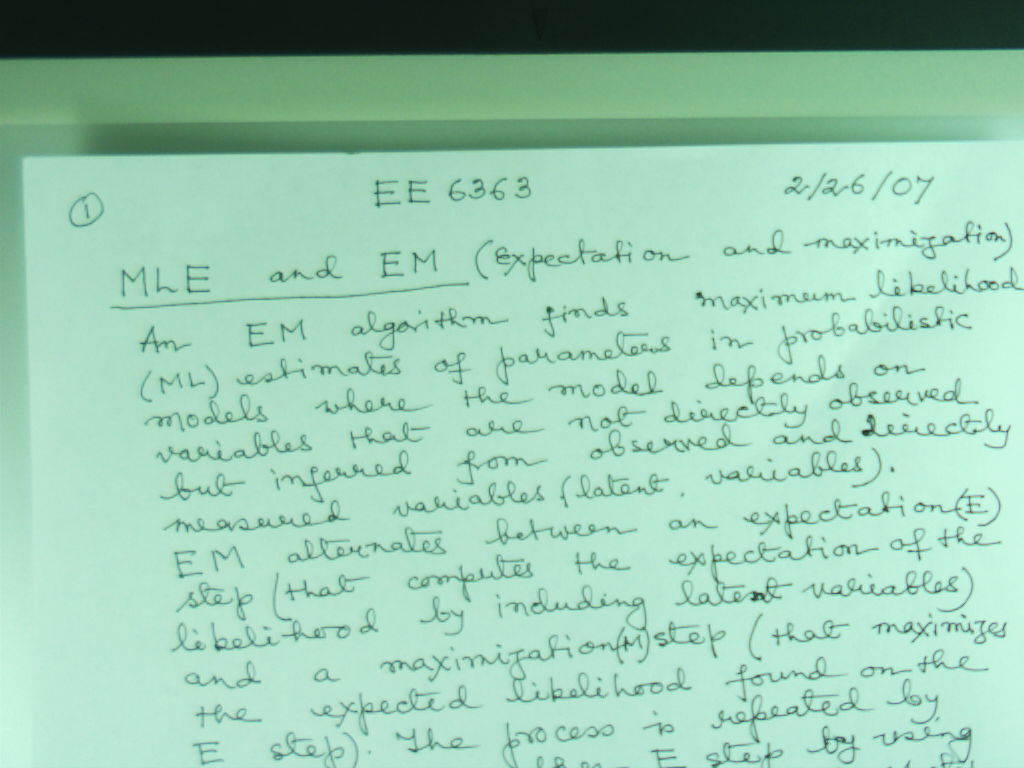 ① EE 6363 2/26/07
MLE and EM (Expectation and maximization)
An EM algorithm finds maximum likelihood
(ML) estimates of parameters in probabilistic
models where the model depends on
variables that are not directly observed
but inferred from observed and directly
measured variables (latent variables).
EM alternates between an expectation(E)
step (that computes the expectation of the
likelihood by including latent variables)
and a maximization(M) step (that maximizes
the expected likelihood found on the
E step). The process is repeated by
E step by using